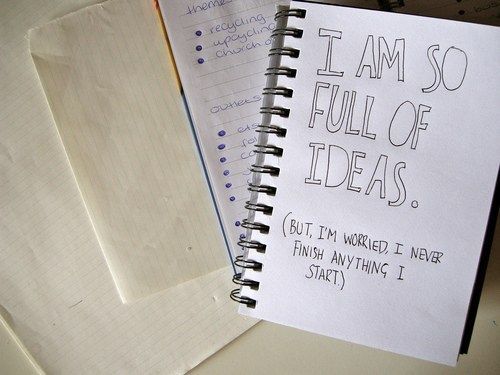 theme
recycling
upcycling
church o
outlets
I AM SO
FULL OF
IDEAS.
(BUT, I'M WORRIED, I NEVER
FINISH ANYTHING I
START.)